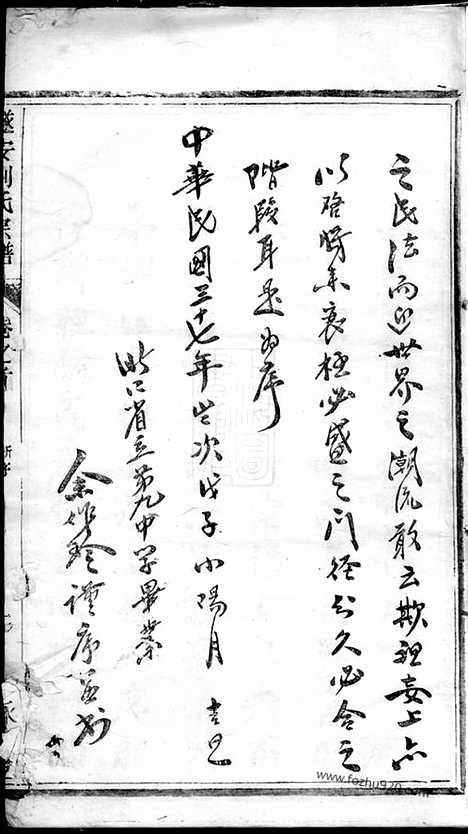 之民法而迎世界之潮流敢云欺祖妄上亦
以啓將來衰極必盛之門徑分久必合之
階段耳是為序
中華民國三十七年歲次戊子小陽月 吉旦
浙江省立第九中學畢業
余 謹序並書
遂安劉氏宗譜
卷之首
新序
www.fozhu920.com